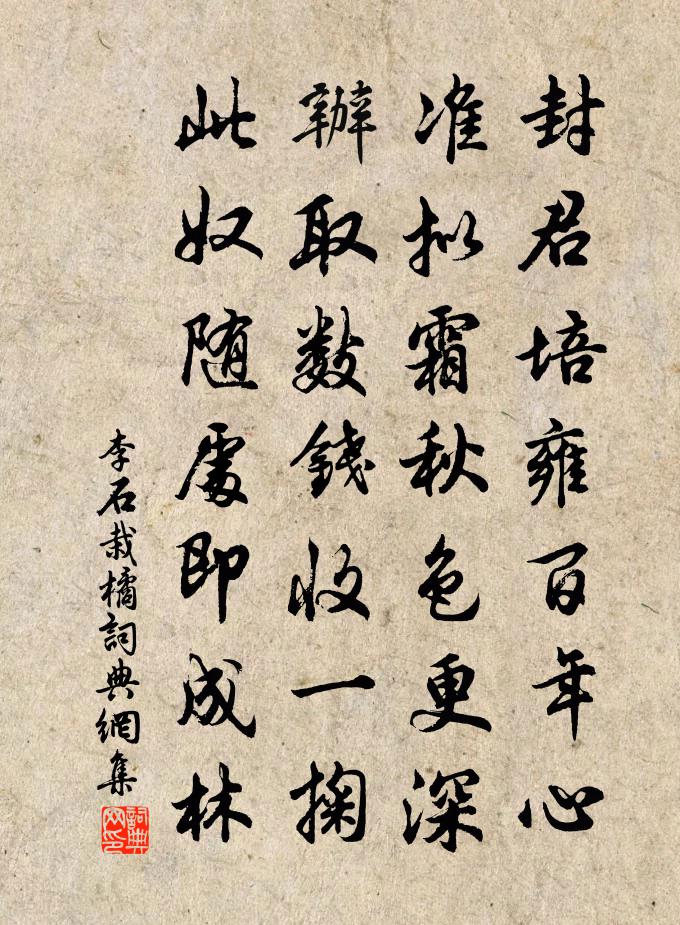 封君培雍百年心
准拟霜秋色更深
辦取數錢收一掬
此奴随處即成林
李石栽橘詞典網集
詞典网印